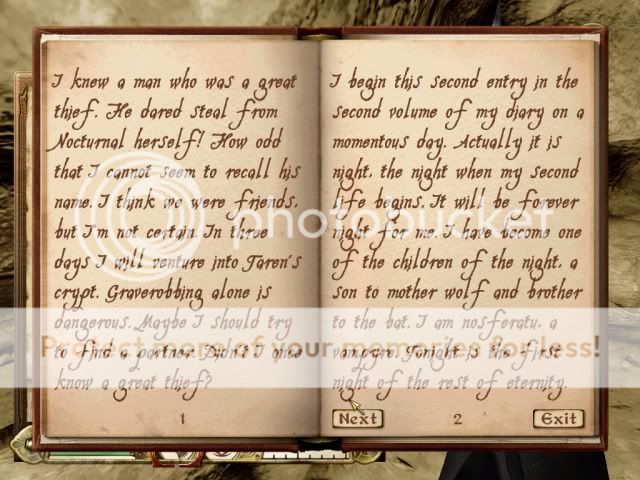 I knew a man who was a great
thief. He dared steal from
Nocturnal herself! How odd
that I cannot seem to recall his
name. I think we were friends,
but I'm not certain. In three
days I will venture into Taren's
crypt. Graverobbing alone is
dangerous. Maybe I should try
to find a partner. Didn't I once
know a great thief?
1
I begin this second entry in the
second volume of my diary on a
momentous day. Actually it is
night, the night when my second
life begins. It will be forever
night for me. I have become one
of the children of the night, a
son to mother wolf and brother
to the bat. I am nosferatu, a
vampyre. Tonight is the first
night of the rest of eternity.
Next
2
Exit
photobucket
Protect more of your memories for less!